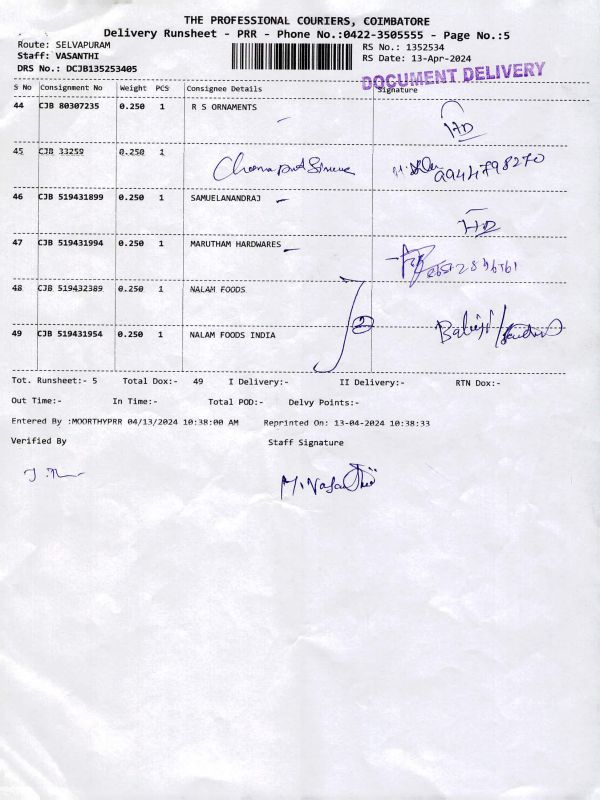 THE PROFESSIONAL COURIERS, COIMBATORE
Delivery Runsheet - PRR - Phone No.:0422-3505555 - Page No.:5
Route: SELVAPURAM
RS No.: 1352534
Staff: VASANTHI
RS Date: 13-Apr-2024
DRS No.: DCJB135253405
DOCUMENT DELIVERY
S No Consignment No Weight PCS Consignee Details Signature
44 CJB 80307235 0.250 1 R S ORNAMENTS
HD
45 CJB 33259 0.250 1
46 CJB 519431899 0.250 1 SAMUELANANDRAJ
HD
47 CJB 519431994 0.250 1 MARUTHAM HARDWARES
48 CJB 519432389 0.250 1 NALAM FOODS
2
49 CJB 519431954 0.250 1 NALAM FOODS INDIA
Tot. Runsheet:- 5 Total Dox:- 49 I Delivery:- II Delivery:- RTN Dox:-
Out Time:- In Time:- Total POD:- Delvy Points:-
Entered By :MOORTHYPRR 04/13/2024 10:38:00 AM Reprinted On: 13-04-2024 10:38:33
Verified By Staff Signature